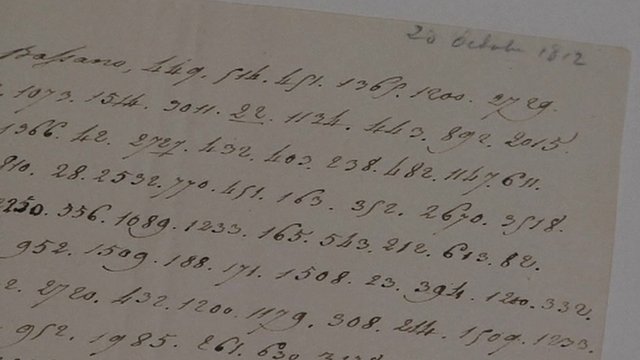 20 Octobre 1812
Bassano, 449. 514. 451. 1365. 1200. 2729.
1073. 1514. 3011. 22. 1134. 443. 892. 2015.
1366. 42. 2727. 432. 403. 238. 482. 1147. 611.
810. 28. 2532. 770. 451. 163. 352. 2670. 3518.
2250. 356. 1089. 1233. 165. 543. 212. 613. 82.
952. 1509. 188. 171. 1508. 23. 394. 1200. 332.
2. 2720. 432. 1200. 1179. 308. 214. 1509. 1233.
952. 1985. 261. 630.